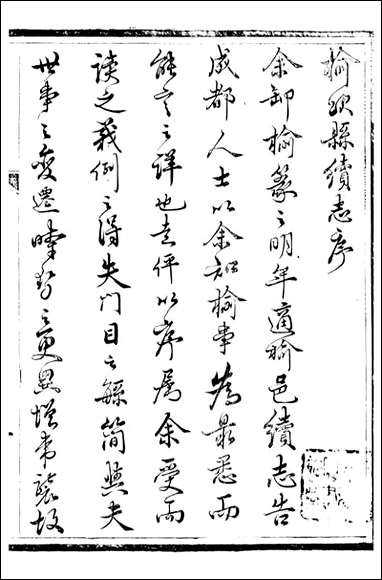 榆次縣續志序
余卸榆篆之明年適榆邑續志告
成都人士以余知榆事為最悉而
能言之詳也走伻以序屬余受而
讀之義例之得失門目之繇簡與夫
世事之變遷時勢之更異增常襲故